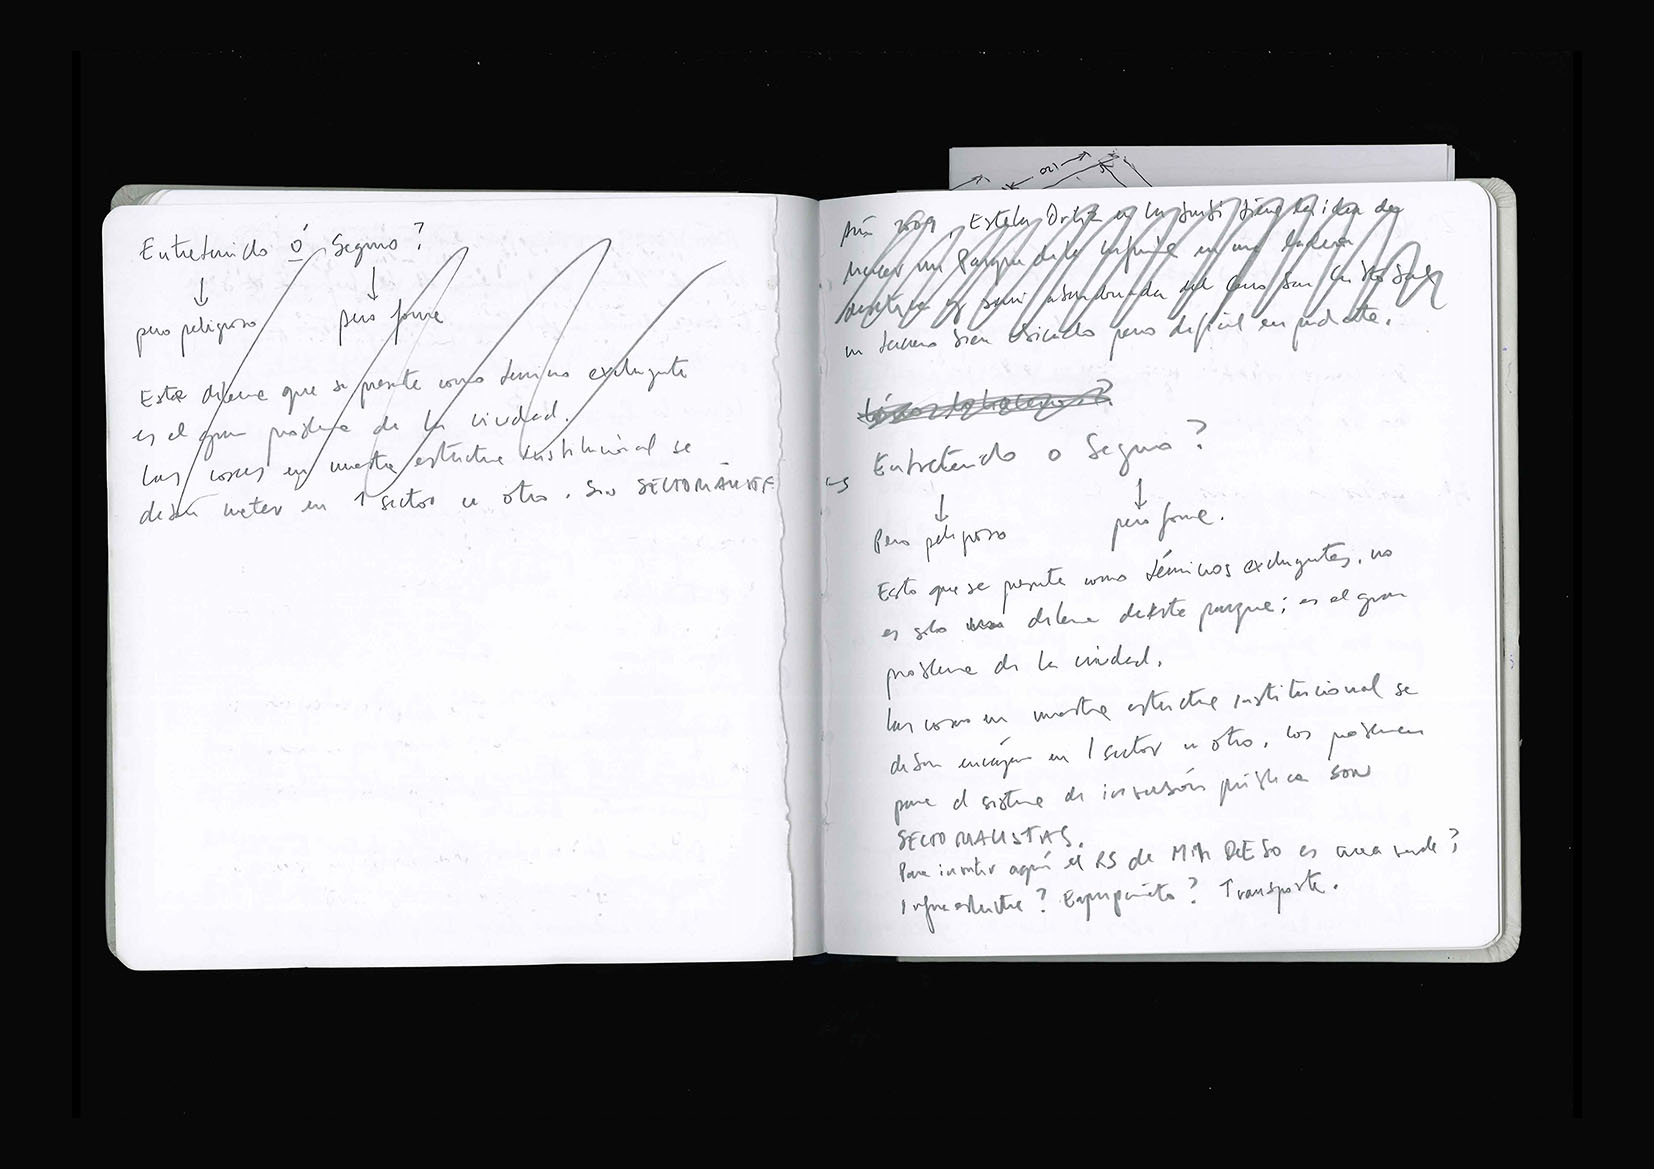 Entretenido ó Seguro?
↓ ↓
pero peligroso pero fome
Este dilema que se presenta como término excluyente
es el gran problema de la ciudad.
Las cosas en nuestra estructura institucional se
deben meter en 1 sector u otro. Son
120
2009, Estela Ortiz en la Junji tiene la idea de
hacer un Parque de la infancia en una ladera
y semi abandonada del Cerro San Cristóbal
un terreno bien ubicado pero difícil en pendiente.
Entretenido o Seguro?
↓ ↓
Pero peligroso pero fome.
Esto que se presenta como términos excluyentes, no
es sólo dilema de este parque; es el gran
problema de la ciudad.
Las cosas en nuestra estructura institucional se
deben encajar en 1 sector u otro. Los problemas
para el sistema de inversión pública son
SECTORIALISTAS.
Para invertir aquí el RS de MIDESO es area verde?
Infraestructura? Equipamiento? Transporte.